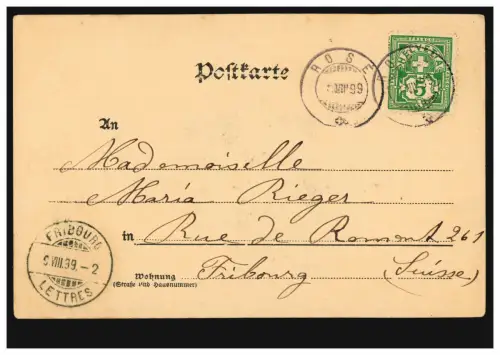 Postkarte
ROSÉ
VIII 99
FRANCO
HELVETIA
5
ROSÉ
An
Mademoiselle
Maria Rieger
in Rue de Romont 261
Fribourg (Suisse)
Wohnung
(Straße und Hausnummer)
FRIBOURG
9.VIII.99.-2
LETTRES